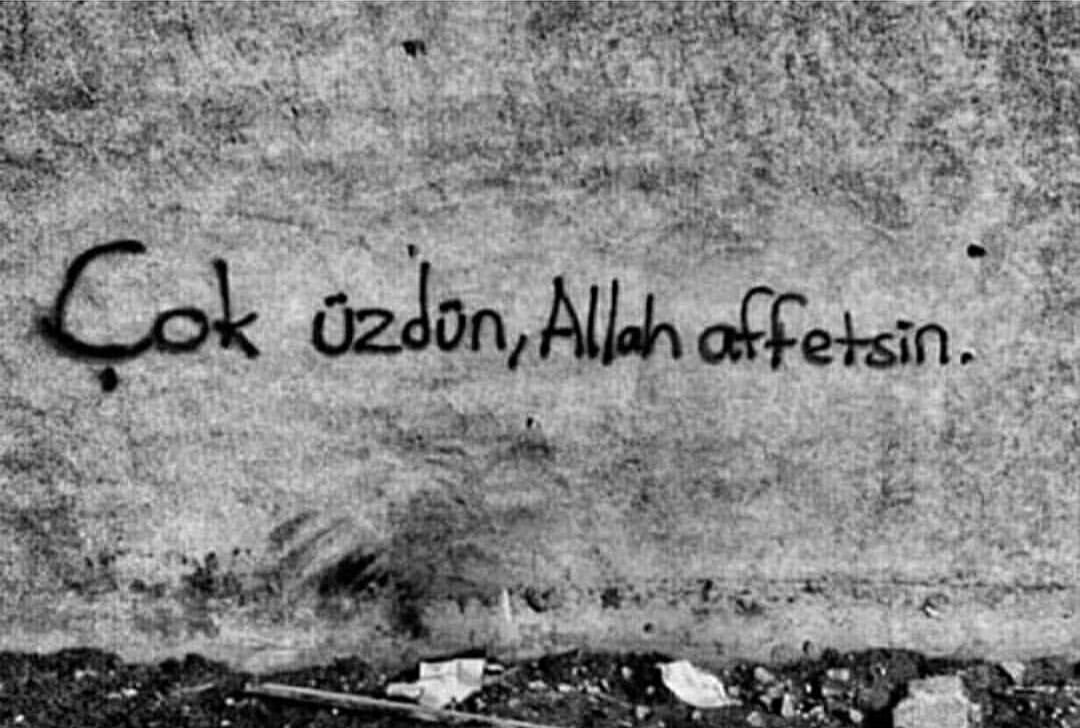 Çok üzdün, Allah affetsin.